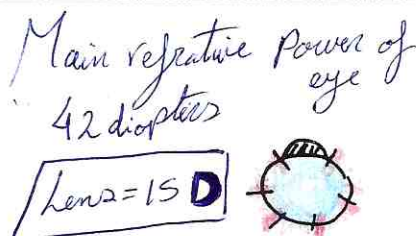 Main refrative Power of
eye
42 diopters
Lens=15 D